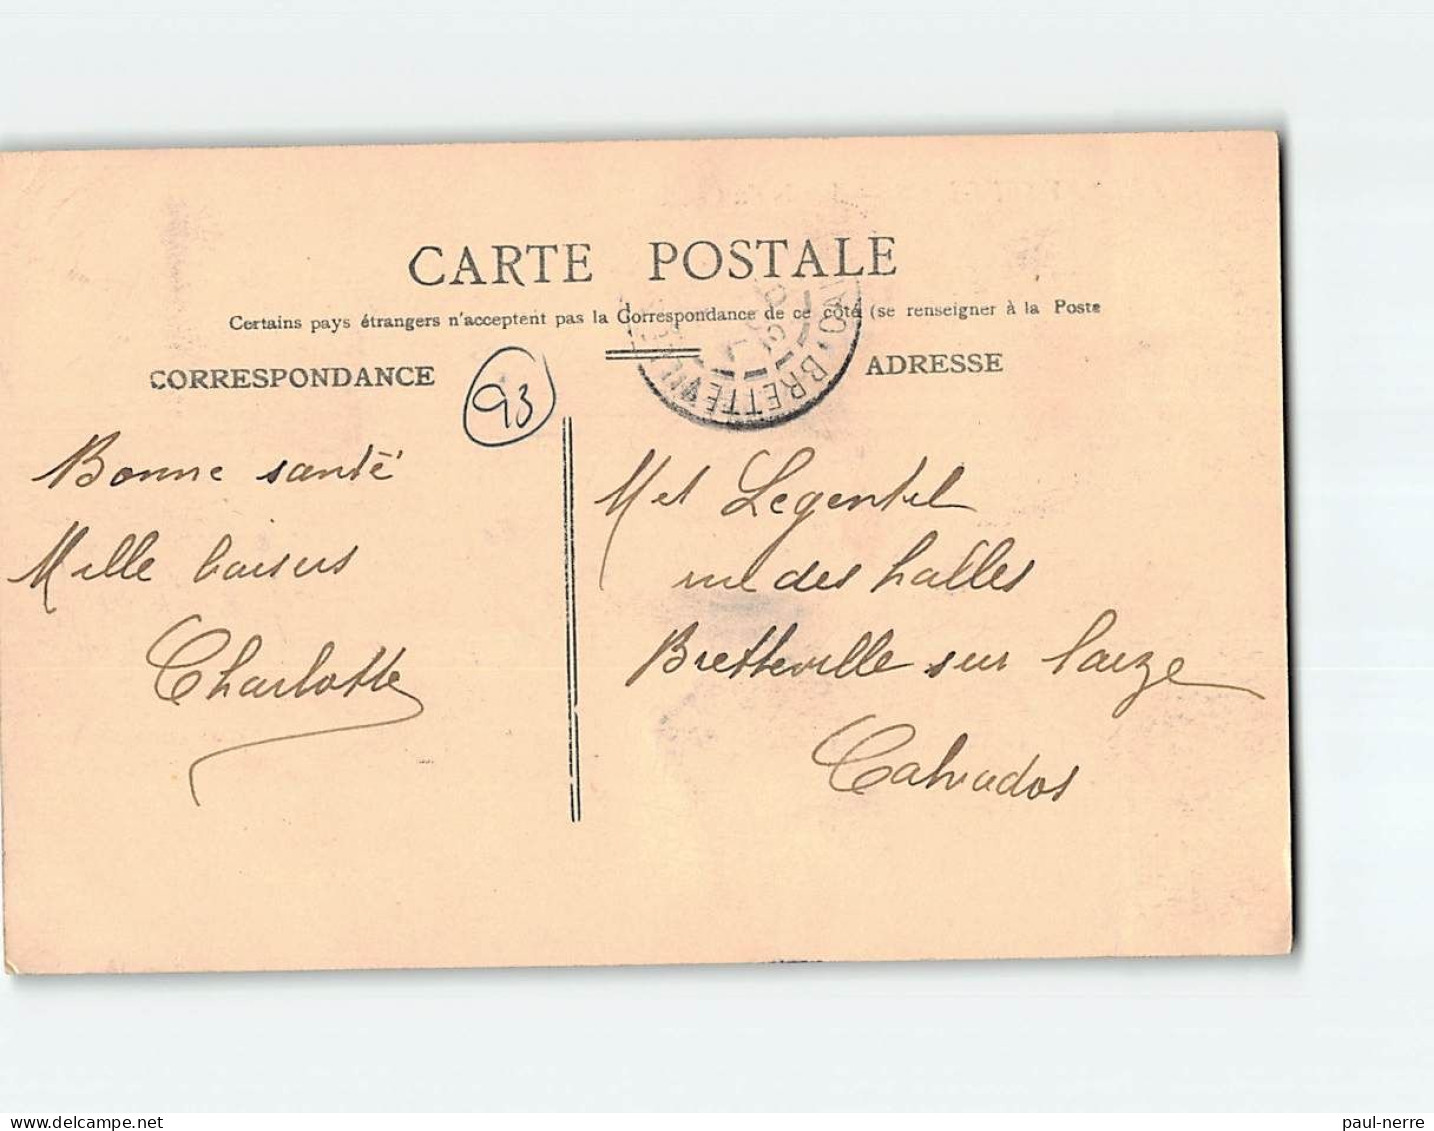 CARTE POSTALE
Certains pays étrangers n'acceptent pas la Correspondance de ce côté (se renseigner à la Poste
CORRESPONDANCE
ADRESSE
93
BRETTEVILLE
Bonne santé
Mille baisers
Charlotte
Legentil
rue des halles
Bretteville sur laize
Calvados
paul-nerre